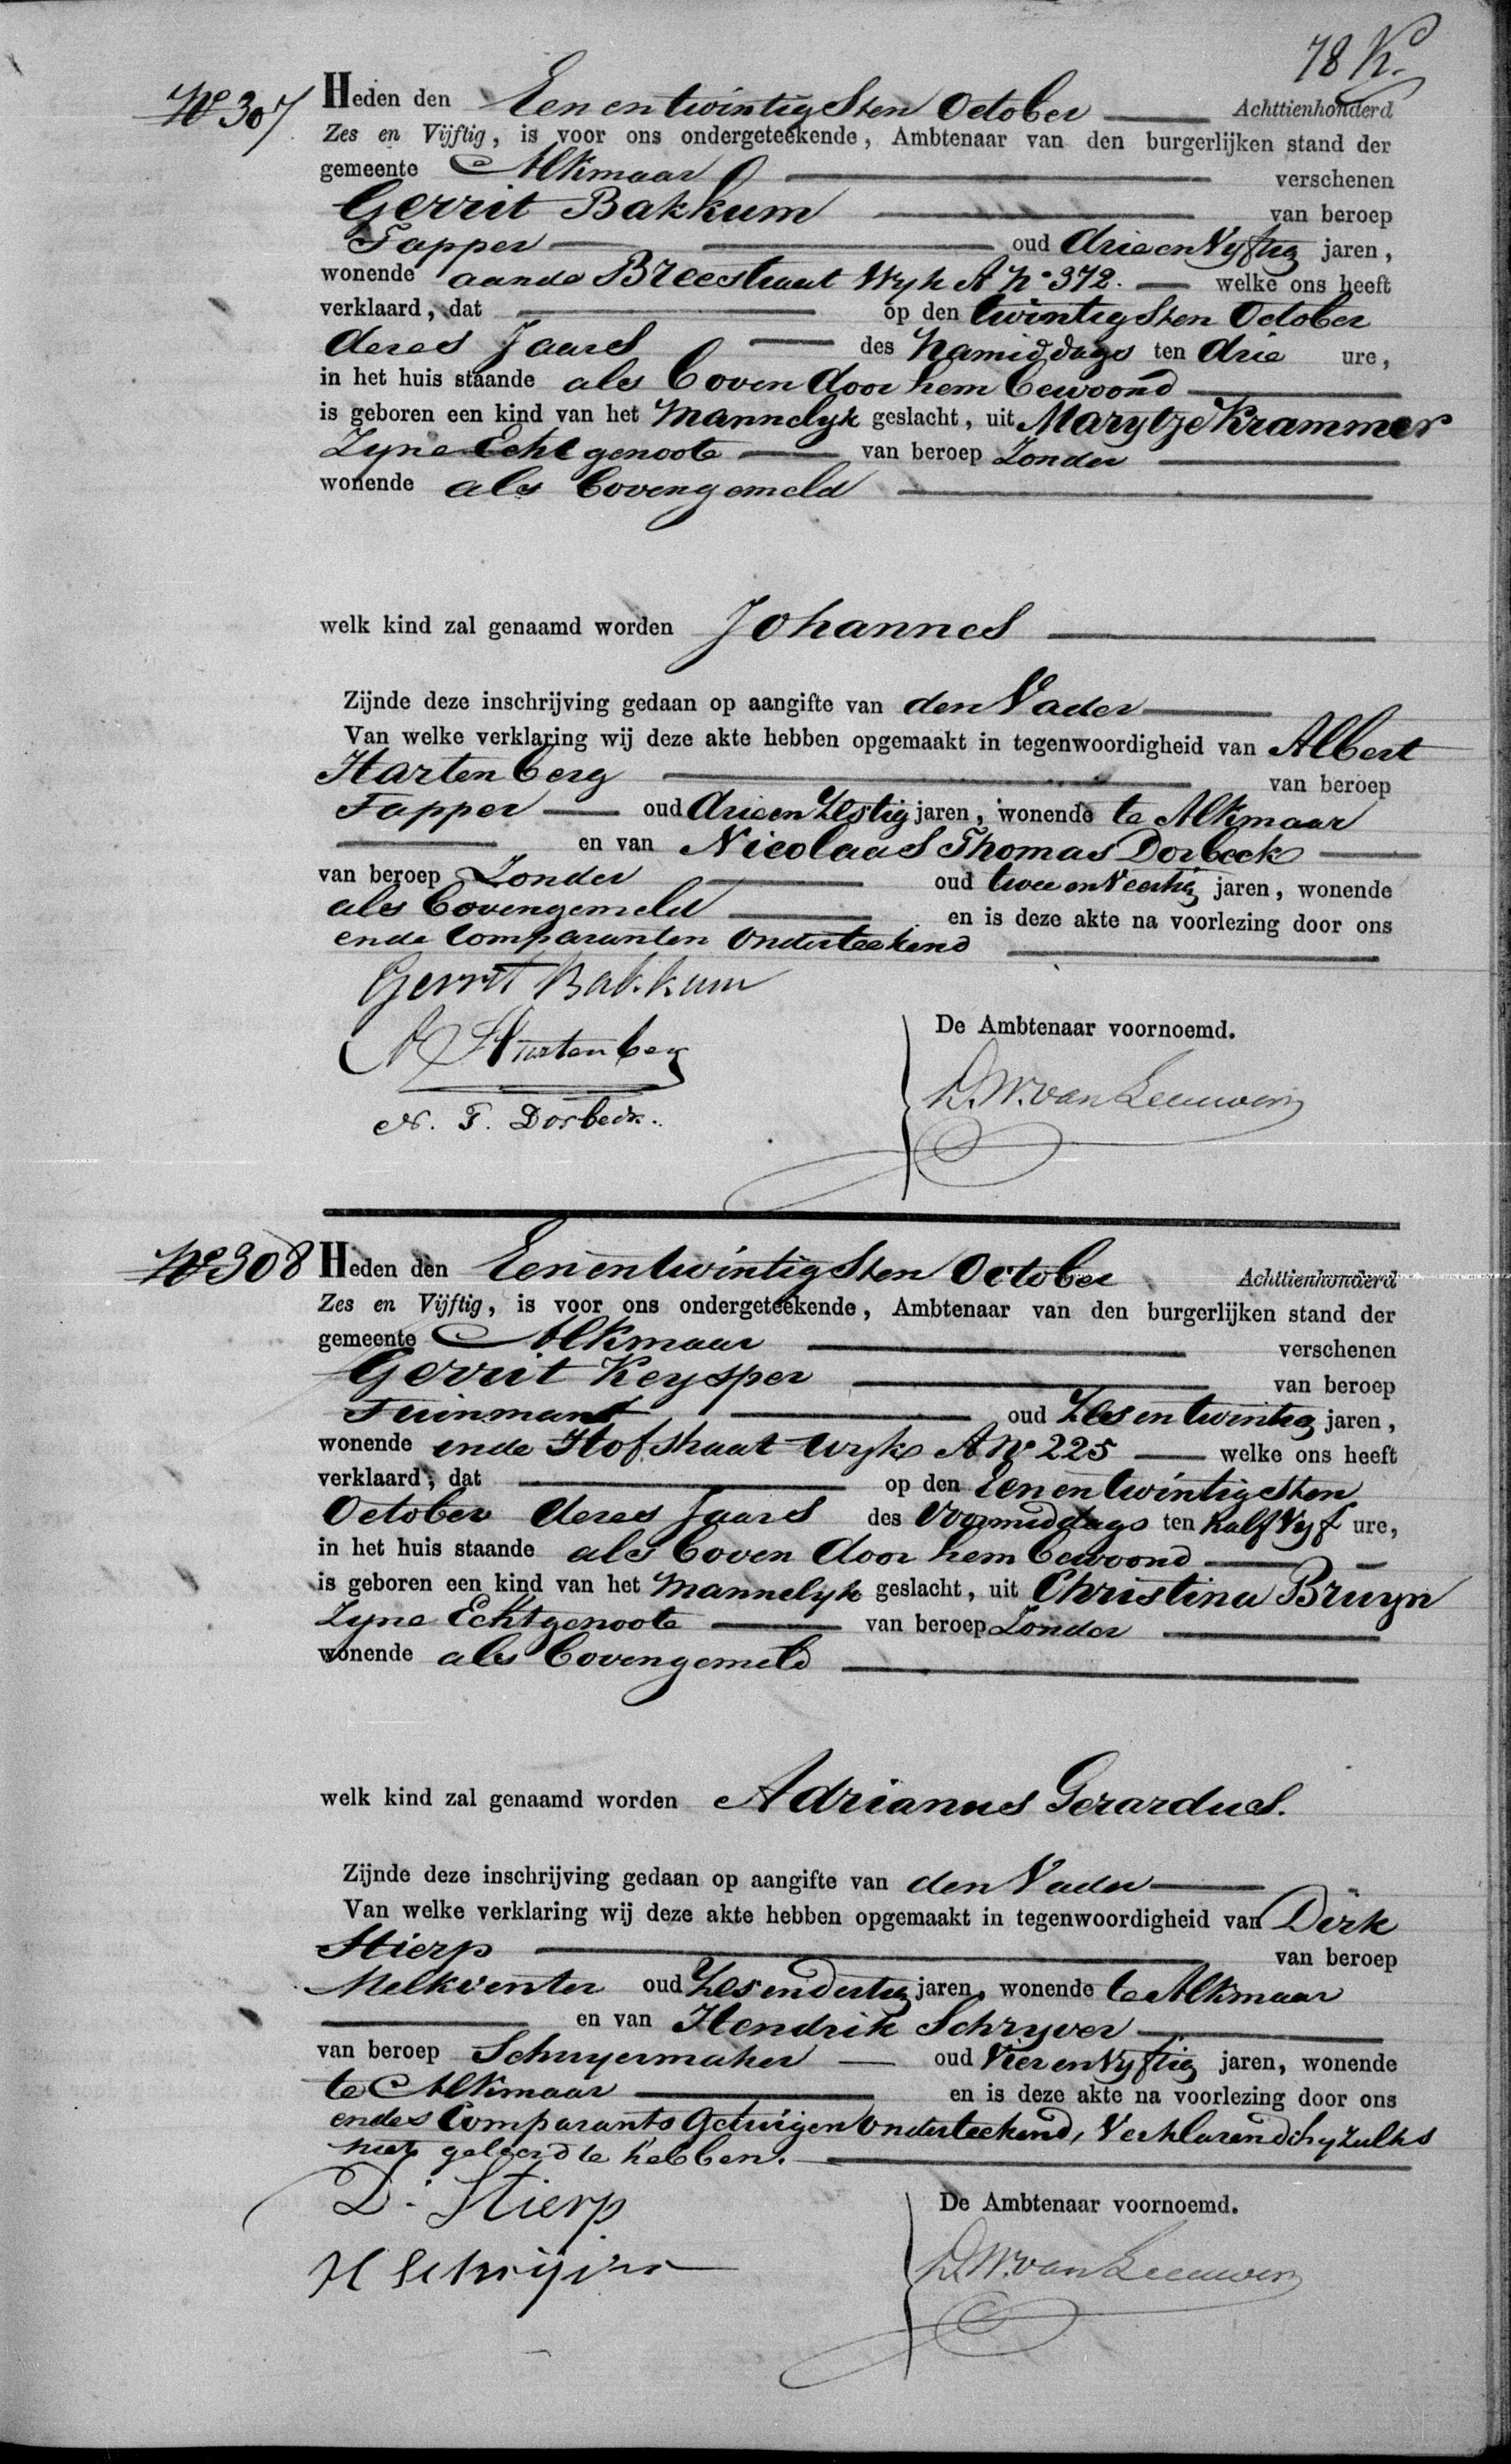 78 K.
No 307
Heden den Een en twintigsten October Achttienhonderd
Zes en Vijftig, is voor ons ondergeteekende, Ambtenaar van den burgerlijken stand der
gemeente Alkmaar verschenen
Gerrit Bakkum van beroep
Tapper oud drie en Vyftig jaren,
wonende aande Breestraat Wyk A No 372. welke ons heeft
verklaard, dat op den twintigsten October
deres Jaars des Namiddags ten drie ure,
in het huis staande als boven door hem bewoond
is geboren een kind van het Mannelyk geslacht, uit Marytje Krammer
Zyne Echtgenoote van beroep Zonder
wonende als bovengemeld
welk kind zal genaamd worden Johannes
Zijnde deze inschrijving gedaan op aangifte van den Vader
Van welke verklaring wij deze akte hebben opgemaakt in tegenwoordigheid van Albert
Hartenberg van beroep
Tapper oud drie en Zestig jaren, wonende te Alkmaar
en van Nicolaas Thomas Dorbeck
van beroep Zonder oud twee en Veertig jaren, wonende
als bovengemeld en is deze akte na voorlezing door ons
ende Comparanten Onderteekend
Gerrit Bakkum
De Ambtenaar voornoemd.
A Hartenberg
D. W. van Leeuwen
N. T. Dorbeck.
No 308
Heden den Een en twintigsten October Achttienhonderd
Zes en Vijftig, is voor ons ondergeteekende, Ambtenaar van den burgerlijken stand der
gemeente Alkmaar verschenen
Gerrit Keysper van beroep
Tuinman oud Zes en twintig jaren,
wonende ende Hofstraat wyk A No 225 welke ons heeft
verklaard, dat op den Een en twintigsten
October deres Jaars des Voormiddags ten half Vyf ure,
in het huis staande als boven door hem bewoond
is geboren een kind van het Mannelyk geslacht, uit Christina Bruyn
Zyne Echtgenoote van beroep Zonder
wonende als bovengemeld
welk kind zal genaamd worden Adrianus Gerardus.
Zijnde deze inschrijving gedaan op aangifte van den Vader
Van welke verklaring wij deze akte hebben opgemaakt in tegenwoordigheid van Dirk
Stierp van beroep
Melkventer oud Zes en dertig jaren, wonende te Alkmaar
en van Hendrik Schryver
van beroep Schuyermaker oud Vier en Vyftig jaren, wonende
te Alkmaar en is deze akte na voorlezing door ons
endes Comparants Getuigen Onderteekend, Verklarende hy Zulks
niet geleerd te hebben.
D. Stierp
De Ambtenaar voornoemd.
H Schrijver
D. W. van Leeuwen